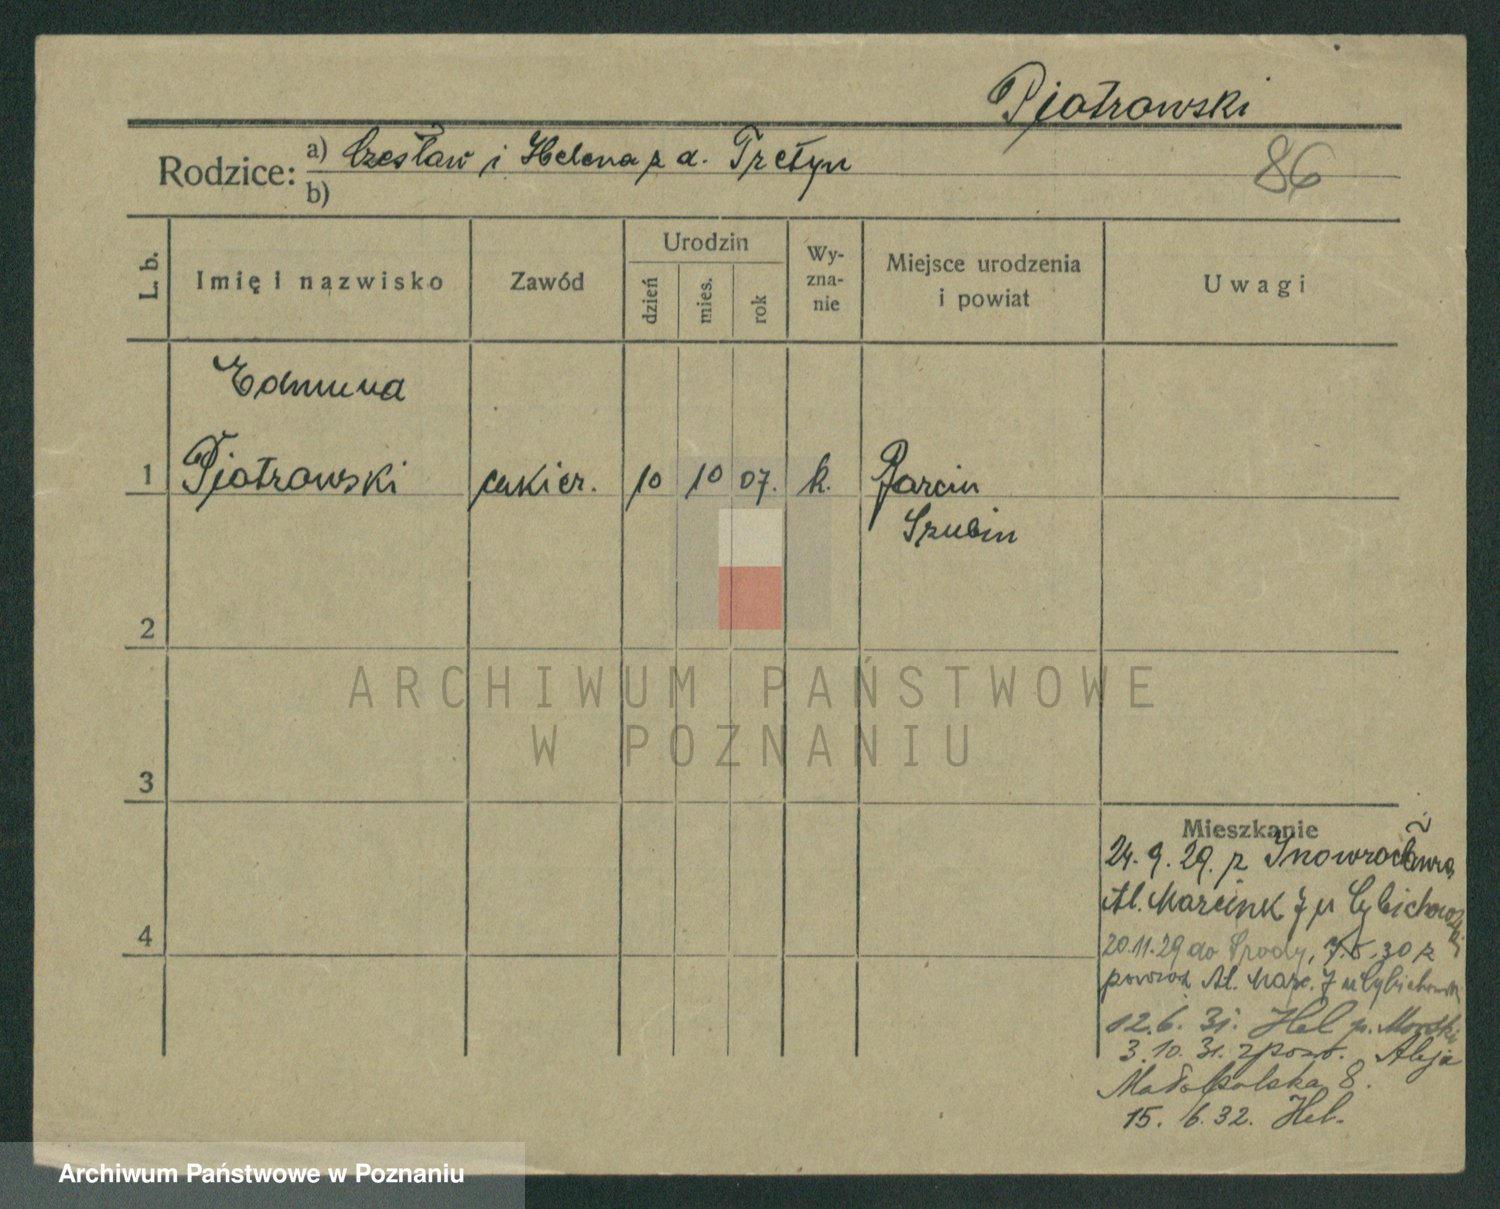 Piotrowski
86
Rodzice: a) Czesław i Helena z d. Tretyn
b)
L. b.
Imię i nazwisko
Zawód
Urodzin
dzień
mies.
rok
Wy-
zna-
nie
Miejsce urodzenia
i powiat
Uwagi
Edmund
1 Piotrowski cukier. 10 10 07. k. Barcin
Szubin
2
3
4
ARCHIWUM PAŃSTWOWE
W POZNANIU
Mieszkanie
24. 9. 29. z Inowrocławia
Al. Marcink 7 u Cybichowski
20.11.29 do Środy, 7.5.30 z
powrot Al. Marc. 7 u Cybichowski
12. 6. 31. Hel p. Morski
3. 10. 31. zpow. Aleja
Małopolska 8.
15. 6. 32. Hel.
Archiwum Państwowe w Poznaniu